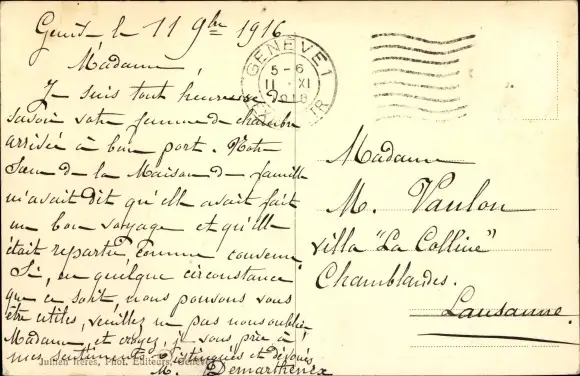 Genève le 11 9bre 1916
Madame
Je suis tout heureuse de
savoir votre femme de chambre
arrivée à bon port. Notre
Sœur de la Maison de famille
m'avait dit qu'elle avait fait
un bon voyage et qu'elle
était repartie comme convenu
Si, en quelque circonstance
que ce soit, nous pouvons vous
être utiles, veuillez ne pas nous oublier,
Madame, et croyez, je vous prie à
mes sentiments distingués et dévoués
M.
GENÈVE 1
5-6
11 XI
Madame
M. Vaulon
Villa "La Colline"
Chamblandes.
Lausanne.
Jullien frères, Phot. Editeurs, Genève